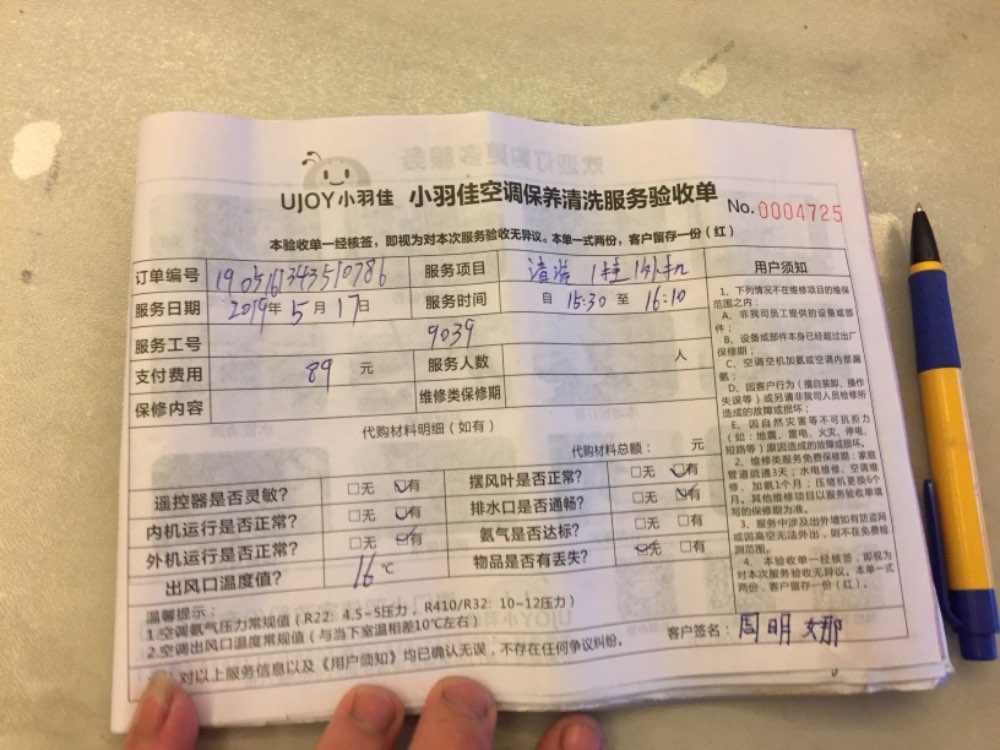 UJOY小羽佳 小羽佳空调保养清洗服务验收单 No.0004725
本验收单一经核签，即视为对本次服务验收无异议。本单一式两份，客户留存一份（红）
订单编号 1905161343510786 服务项目 清洗 1挂1外机
服务日期 2019年5月17日 服务时间 自 15:30 至 16:10
服务工号 9039
支付费用 89 元 服务人数 人
保修内容 维修类保修期
代购材料明细（如有）
代购材料总额： 元
遥控器是否灵敏？ □无 ☑有 摆风叶是否正常？ □无 ☑有
内机运行是否正常？ □无 ☑有 排水口是否通畅？ □无 ☑有
外机运行是否正常？ □无 ☑有 氨气是否达标？ □无 □有
出风口温度值？ 16 ℃ 物品是否有丢失？ ☑无 □有
温馨提示：
1.空调氨气压力常规值（R22：4.5~5压力，R410/R32：10~12压力）
2.空调出风口温度常规值（与当下室温相差10℃左右）
客户签名：周明娜
对以上服务信息以及《用户须知》均已确认无误，不存在任何争议纠纷。
用户须知
1、下列情况不在维修项目的维保
范围之内：
A、非我司员工提供的设备或部
件；
B、设备或部件本身已经超过出厂
保修期；
C、空调空机加氨或空调内部漏
氨；
D、因客户行为（擅自装卸、操作
失误等）或另请非我司人员检修所
造成的故障或损坏；
E、因自然灾害等不可抗拒力
（如：地震、雷电、火灾、停电、
短路等）原因造成的故障或损坏。
2、维修类服务免费保修期：家庭
管道疏通3天；水电维修、空调维
修、加氨1个月；压缩机更换6个
月。其他维修项目以服务验收单填
写的保修期为准。
3、服务中涉及出外墙如有防盗网
或因高空无法外出，则不在免费检
测范围。
4、本验收单一经核签，即视为
对本次服务验收无异议。本单一式
两份，客户留存一份（红）。